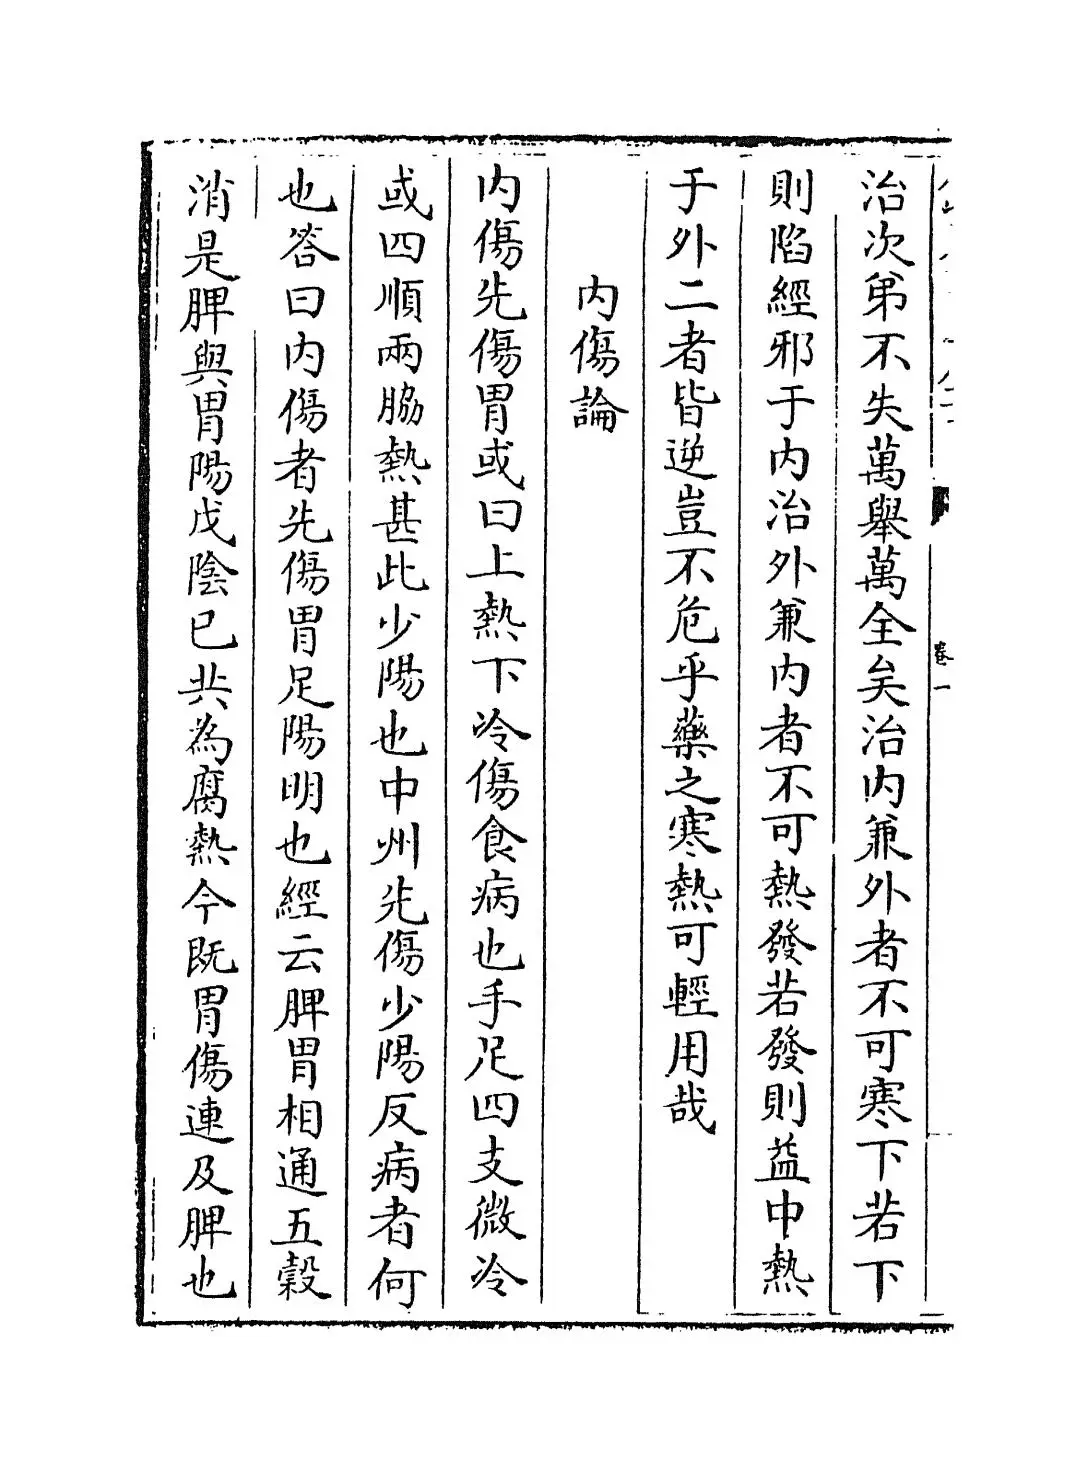 治次第不失萬舉萬全矣治内兼外者不可寒下若下
則陷經邪于内治外兼内者不可熱發若發則益中熱
于外二者皆逆豈不危乎藥之寒熱可輕用哉
内傷論
内傷先傷胃或曰上熱下冷傷食病也手足四支微冷
或四順兩脇熱甚此少陽也中州先傷少陽反病者何
也答曰内傷者先傷胃足陽明也經云脾胃相通五穀
消是脾與胃陽戊陰已共為腐熱今既胃傷連及脾也
卷一